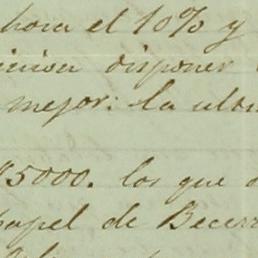 hora el 10% y
disponer
mejor: la ultim
$5000. los que
papel de Becerr